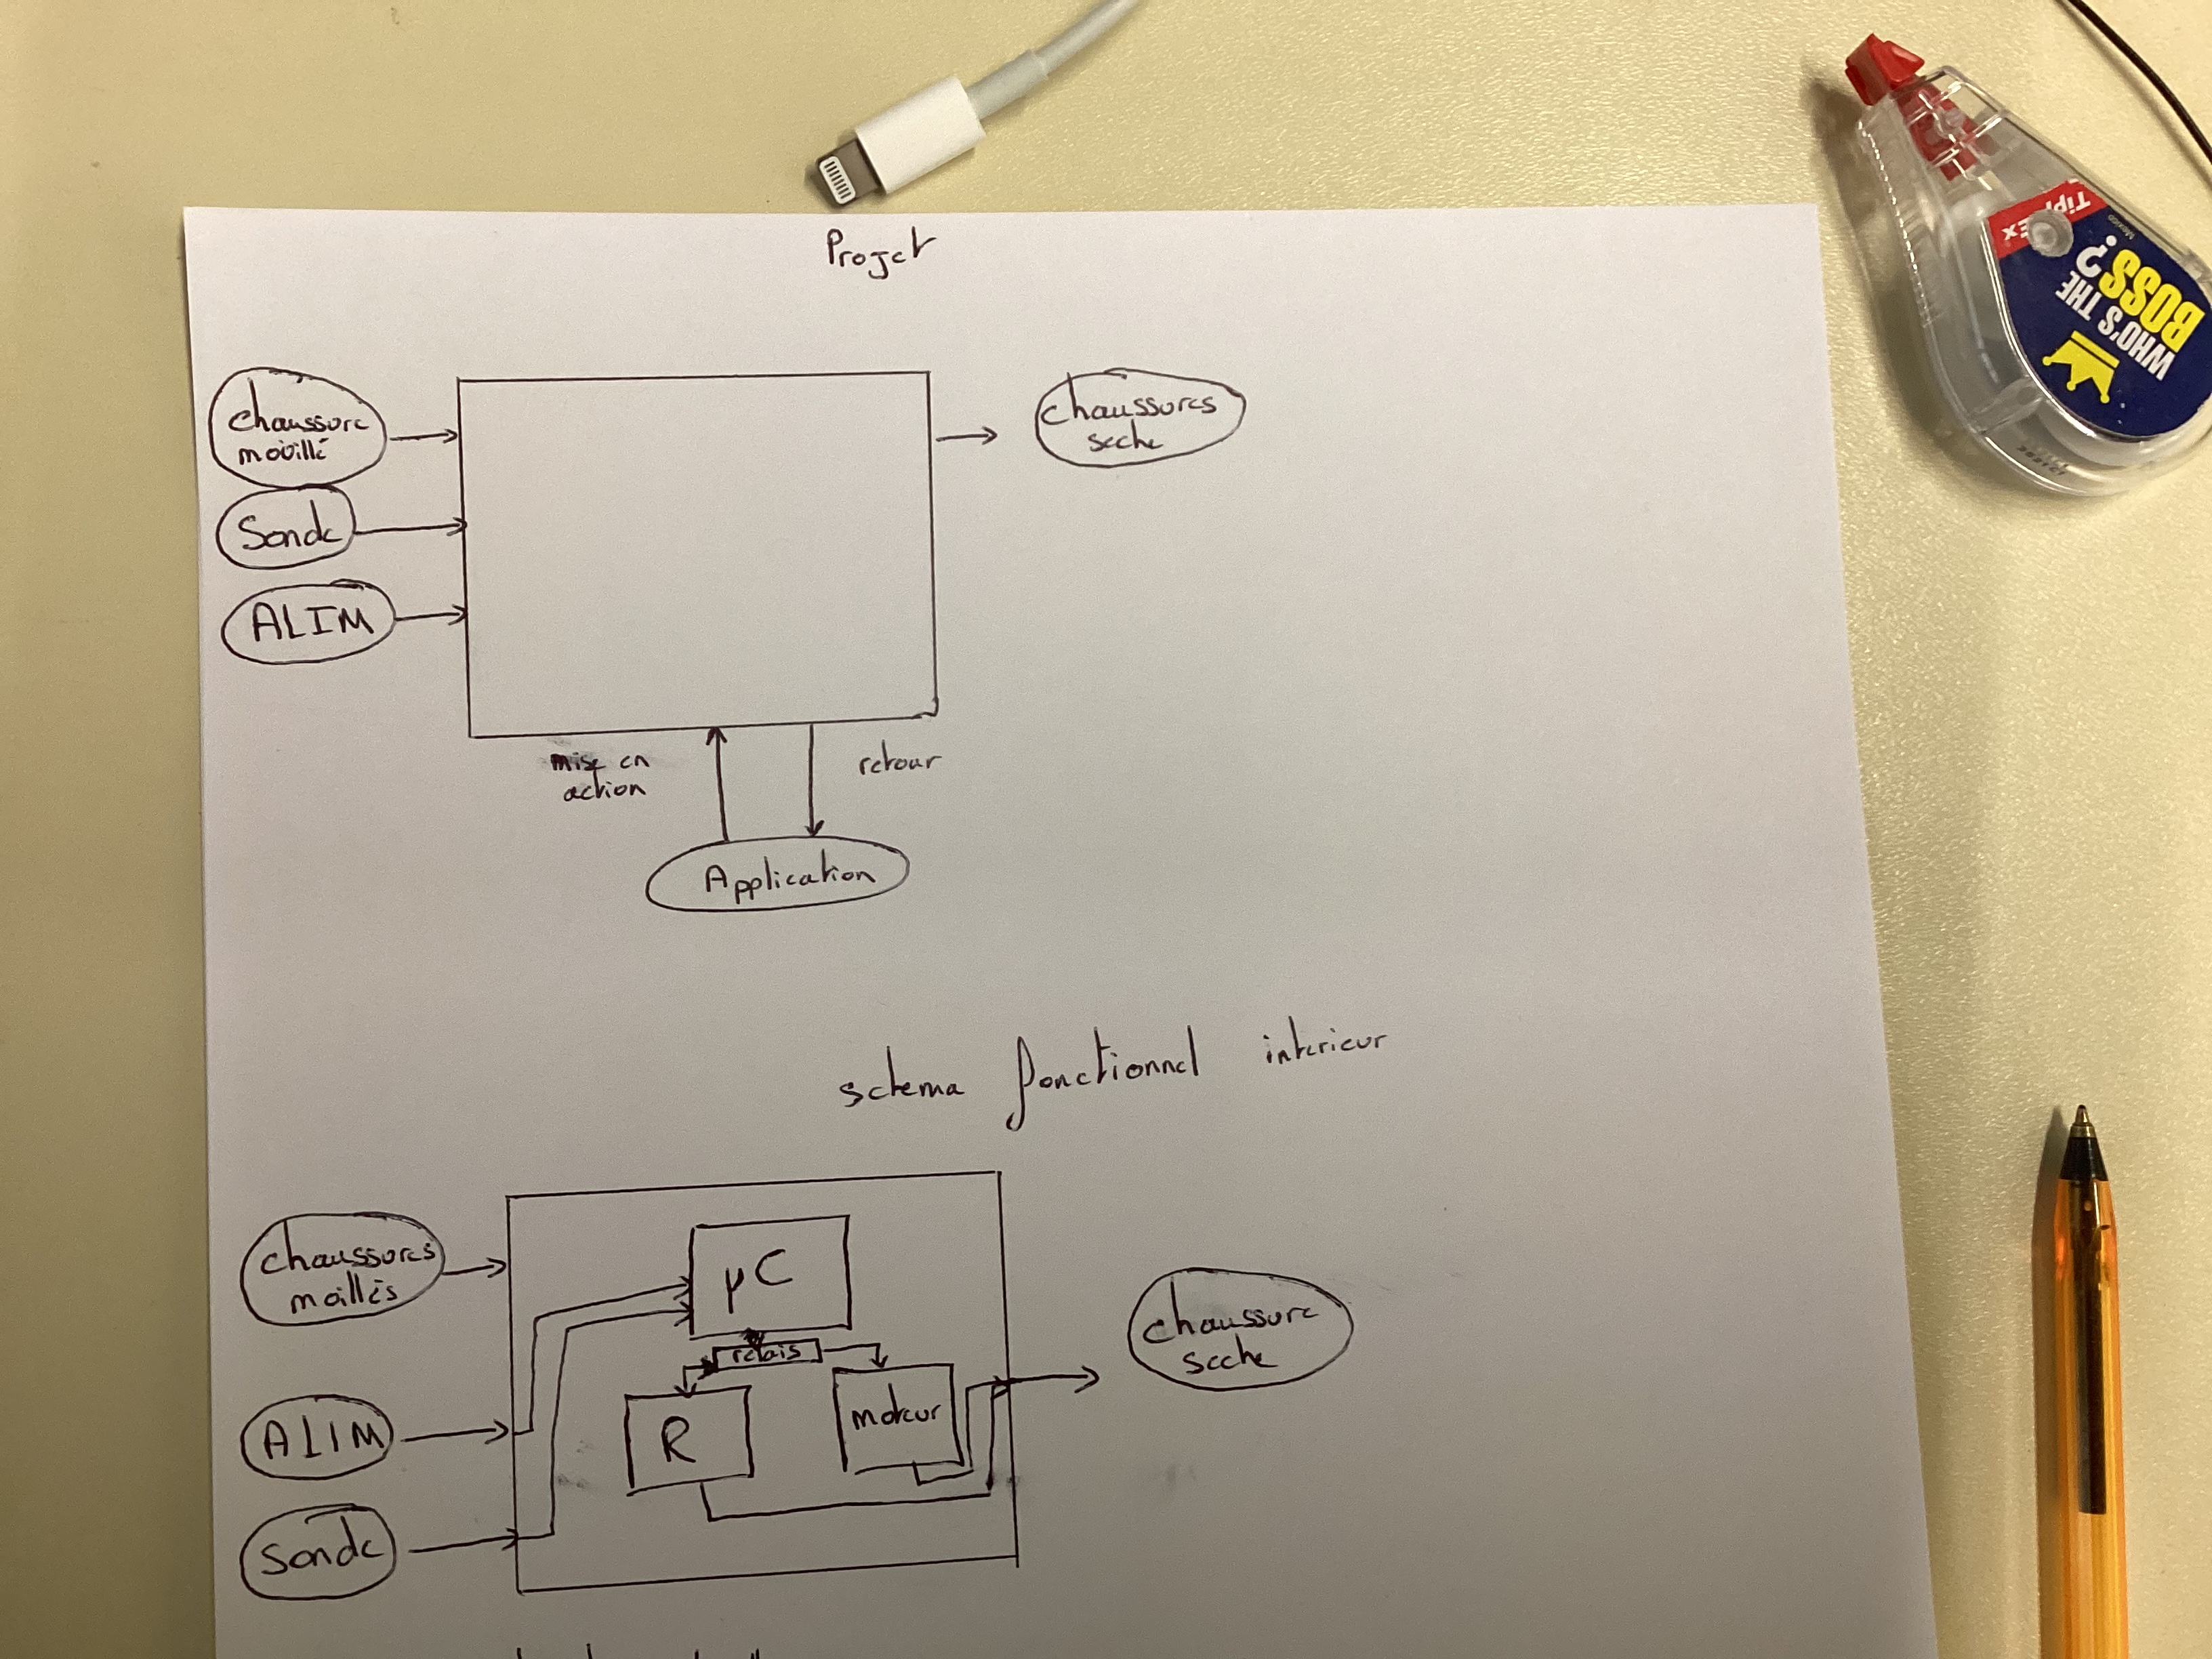 Projet
chaussure
mouillé
Sonde
ALIM
chaussures
seche
mise en
action
retour
Application
schema fonctionnel interieur
chaussures
moillés
ALIM
Sonde
µC
relais
R
moteur
chaussure
seche
Tipp-Ex
Mexico
WHO'S THE
BOSS?